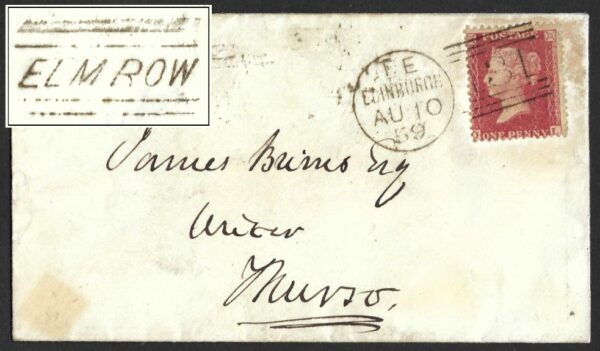 ELM ROW
EDINBURGH
AU 10
59
POSTAGE
ONE PENNY
James Brims Esq
Writer
Thurso.